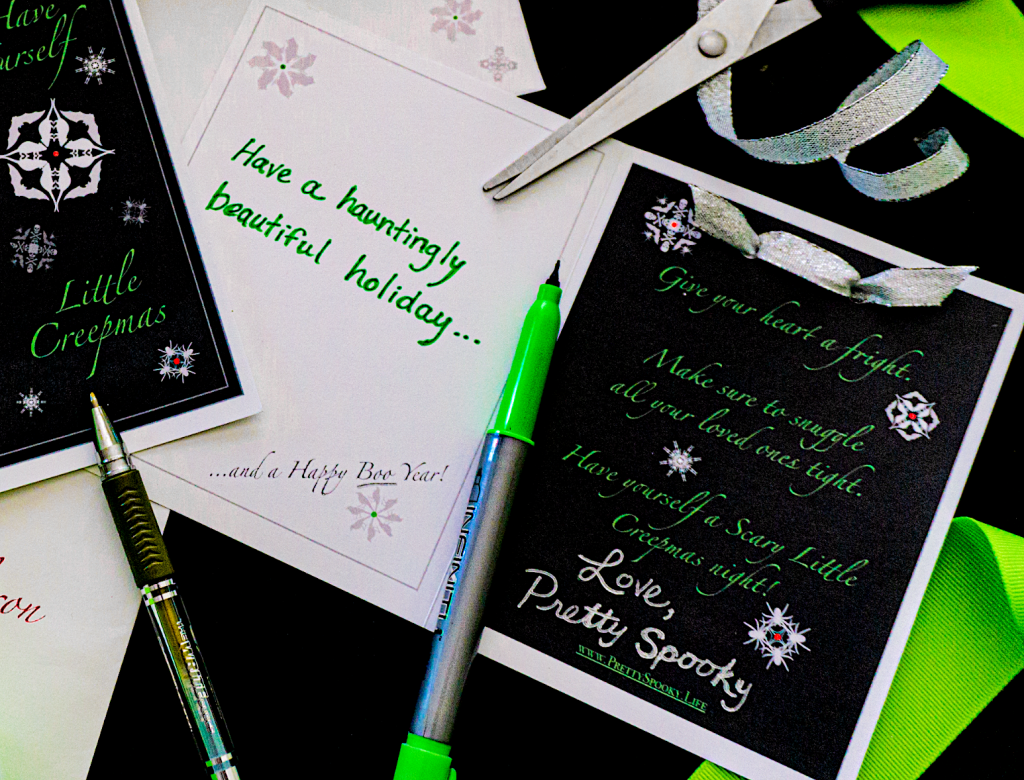 Have
Yourself
Little
Creepmas
Have a hauntingly
beautiful holiday...
...and a Happy Boo Year!
Give your heart a fright.
Make sure to snuggle
all your loved ones tight.
Have yourself a Scary Little
Creepmas night!
Love,
Pretty Spooky
www.PrettySpooky.Life